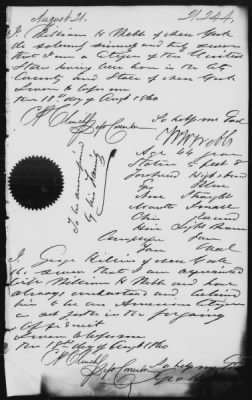 August 21.
21,244
I William H Webb of New York
do solemnly sincerely and truly swear
that I am a Citizen of the United
States having been born in the City
County and State of New York
Sworn to before me
this 18th day of Augt 1860
So help me God
W H Webb
Age
Stature 5 feet 8
Forehead High & broad
Eyes Blue
Nose Straight
Mouth Small
Chin Round
Hair Light Brown
Complexion
Face Oval
To be accompanied
by his family
I George
of New York
swear that I am acquainted
with William H Webb and have
always understood and believed
him to be an American Citizen
as set forth in the foregoing
affidavit
Sworn to before me
this 18th day of Augt 1860
So help me God